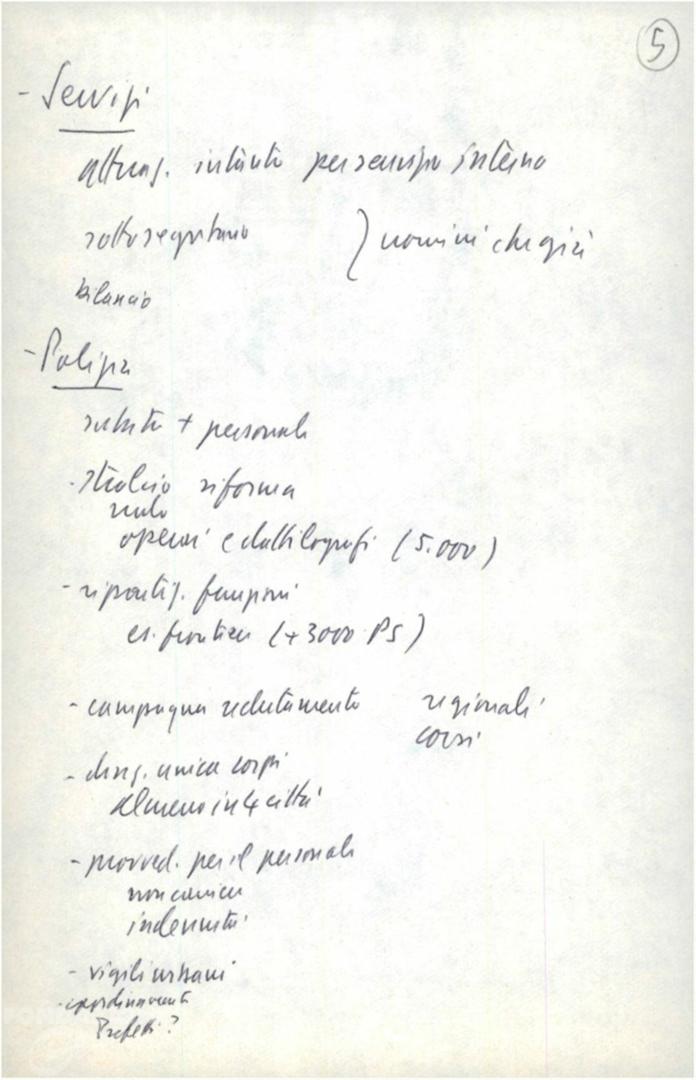 5
- Servizi
attung. intanto per servizio interno
sottosegretario } uomini chiave
bilancio
- Polizia
subito + personale
- stralcio riforma
ruolo
operai e dattilografi (5.000)
- ripartiz. funzioni
es. frontiera (+3000 PS)
- campagna reclutamento regionali
corsi
- unica corpi
almeno in 4 città
- provved. per il personale
non carriera
indennità
- vigili urbani
- coordinamento
Prefetti?